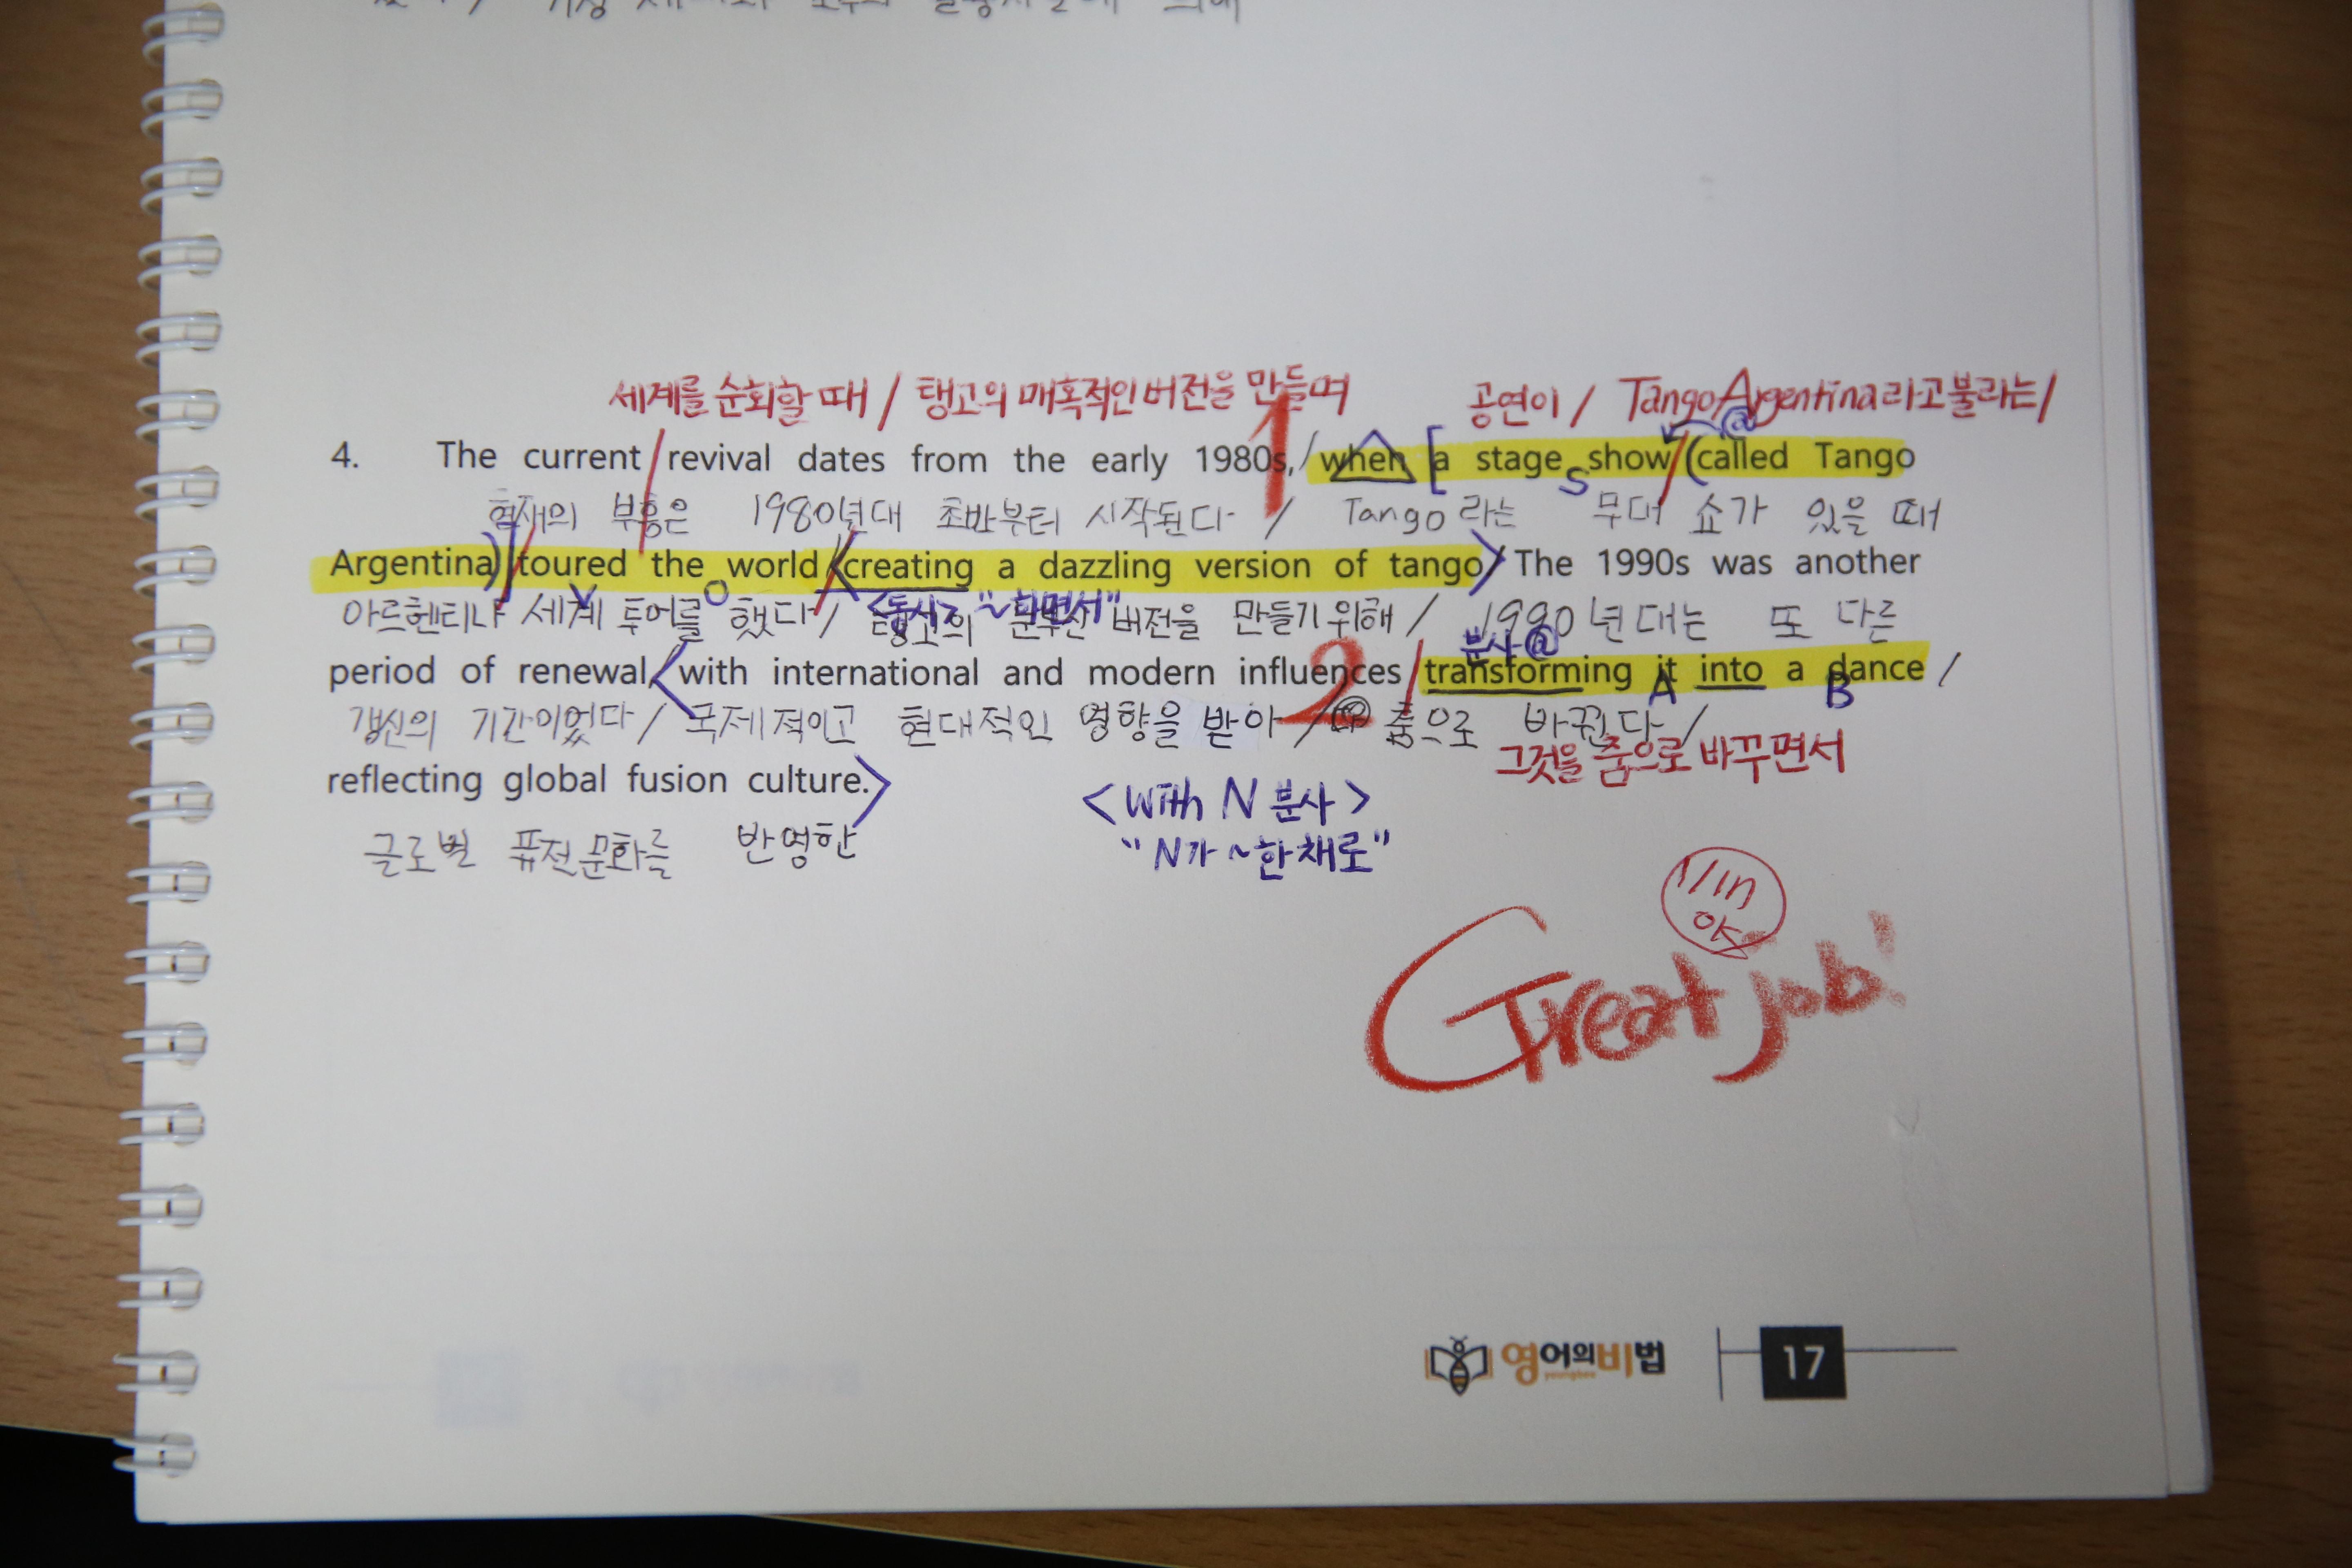 세계를 순회할 때 / 탱고의 매혹적인 버전을 만들며 공연이 / Tango Argentina라고 불리는/
1
@
4. The current / revival dates from the early 1980s, / when [a stage show / (called Tango
S
현재의 부흥은 1980년대 초반부터 시작된다 / Tango 라는 무대 쇼가 있을 때
Argentina)] / toured the world / <creating a dazzling version of tango> / The 1990s was another
V O <동시> "~하면서"
아르헨티나 세계 투어를 했다 / 탱고의 버전을 만들기 위해 / 1990년대는 또 다른
분사@
period of renewal, / <with international and modern influences / transforming it into a dance /
2 A B
갱신의 기간이었다 / 국제적이고 현대적인 영향을 받아 / 춤으로 바뀐다 /
그것을 춤으로 바꾸면서
reflecting global fusion culture.>
<with N 분사>
글로벌 퓨전문화를 반영한
"N가 ~한채로"
Great job!
영어의비법
youngbee
17